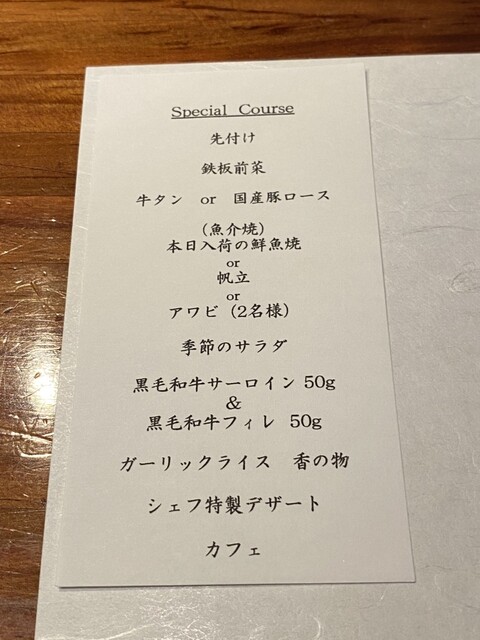 Special Course
先付け
鉄板前菜
牛タン or 国産豚ロース
（魚介焼）
本日入荷の鮮魚焼
or
帆立
or
アワビ（2名様）
季節のサラダ
黒毛和牛サーロイン 50g
&
黒毛和牛フィレ 50g
ガーリックライス 香の物
シェフ特製デザート
カフェ